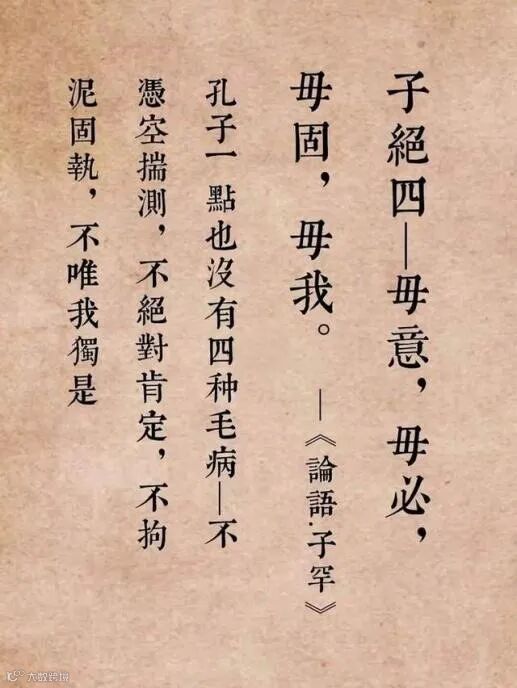 子絕四—毋意，毋必，
毋固，毋我。
—《論語·子罕》
孔子一點也沒有四种毛病—不
憑空揣測，不絕對肯定，不拘
泥固執，不唯我獨是
大数跨境